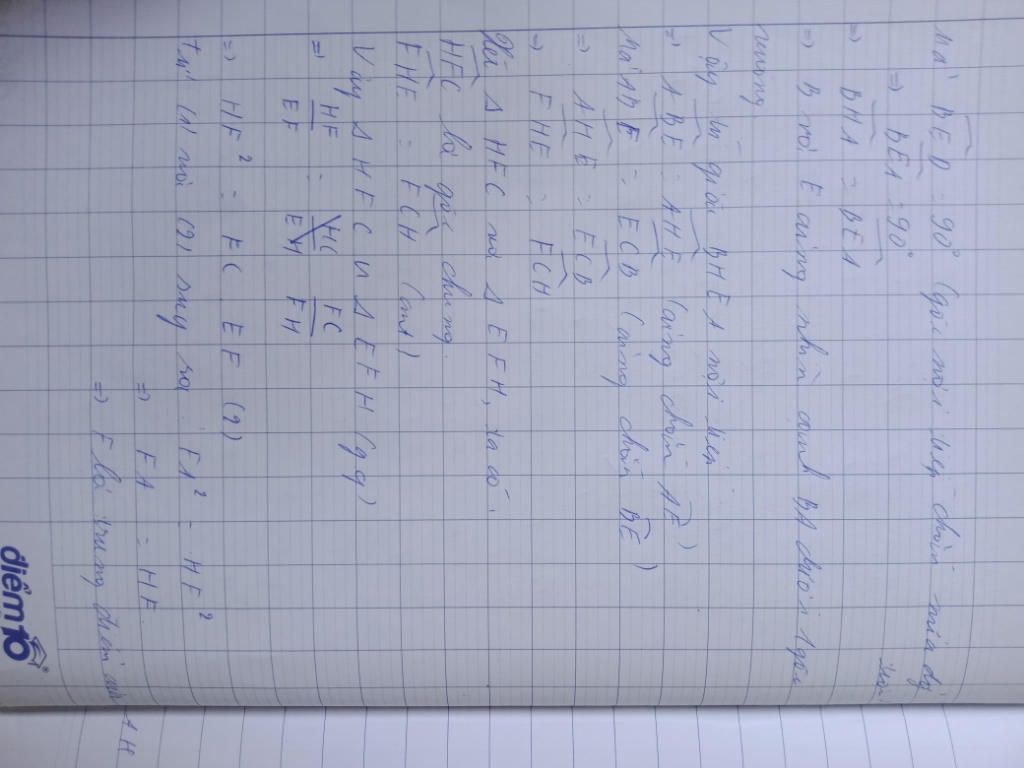 Mà BED = 90° (góc nội tiếp chắn nửa đg tròn)
=> BEA = 90°
=> BHA = BEA
=> B và E cùng nhìn cạnh BA dưới 1 góc
vuông.
Vậy tứ giác BHEA nội tiếp
=> ABE = AHE (cùng chắn AE)
Mà ABF = ECB (cùng chắn BE)
=> AHE = ECB
=> FHE = FCH
Xét Δ HFC và Δ EFH, ta có:
HFC là góc chung.
FHE = FCH (cmt)
Vậy Δ HFC ∽ Δ EFH (g.g)
=> HF/EF = FC/FH
=> HF² = FC . EF (2)
Từ (1) và (2) suy ra: FA² = HF²
=> FA = HF
=> F là trung điểm của AH
điểm10